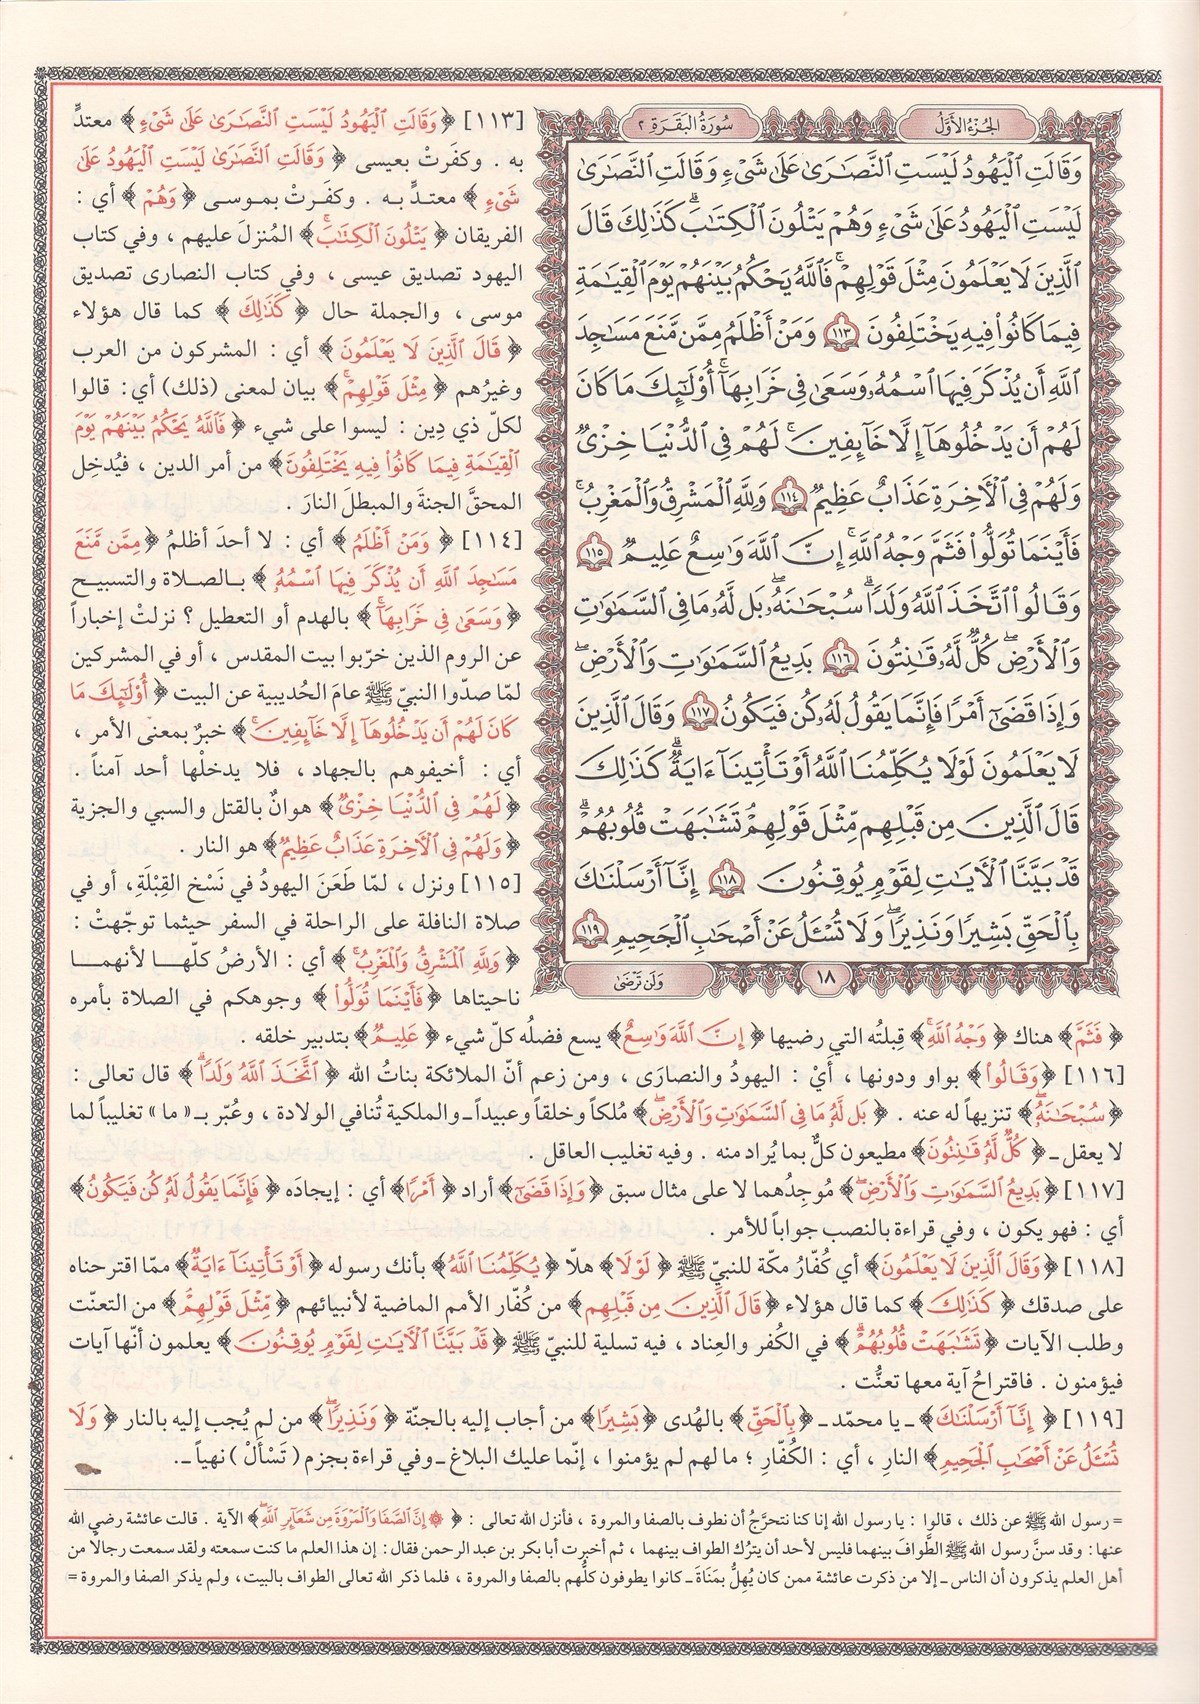 الجزء الأول
سورة البقرة ٢
وَقَالَتِ ٱلْيَهُودُ لَيْسَتِ ٱلنَّصَٰرَىٰ عَلَىٰ شَىْءٍ وَقَالَتِ ٱلنَّصَٰرَىٰ
لَيْسَتِ ٱلْيَهُودُ عَلَىٰ شَىْءٍ وَهُمْ يَتْلُونَ ٱلْكِتَٰبَ ۗ كَذَٰلِكَ قَالَ
ٱلَّذِينَ لَا يَعْلَمُونَ مِثْلَ قَوْلِهِمْ ۚ فَٱللَّهُ يَحْكُمُ بَيْنَهُمْ يَوْمَ ٱلْقِيَٰمَةِ
فِيمَا كَانُوا۟ فِيهِ يَخْتَلِفُونَ ١١٣ وَمَنْ أَظْلَمُ مِمَّن مَّنَعَ مَسَٰجِدَ
ٱللَّهِ أَن يُذْكَرَ فِيهَا ٱسْمُهُۥ وَسَعَىٰ فِى خَرَابِهَآ ۚ أُو۟لَٰٓئِكَ مَا كَانَ
لَهُمْ أَن يَدْخُلُوهَآ إِلَّا خَآئِفِينَ ۚ لَهُمْ فِى ٱلدُّنْيَا خِزْىٌ
وَلَهُمْ فِى ٱلْءَاخِرَةِ عَذَابٌ عَظِيمٌ ١١٤ وَلِلَّهِ ٱلْمَشْرِقُ وَٱلْمَغْرِبُ ۚ
فَأَيْنَمَا تُوَلُّوا۟ فَثَمَّ وَجْهُ ٱللَّهِ ۚ إِنَّ ٱللَّهَ وَٰسِعٌ عَلِيمٌ ١١٥
وَقَالُوا۟ ٱتَّخَذَ ٱللَّهُ وَلَدًا ۗ سُبْحَٰنَهُۥ ۖ بَل لَّهُۥ مَا فِى ٱلسَّمَٰوَٰتِ
وَٱلْأَرْضِ ۖ كُلٌّ لَّهُۥ قَٰنِتُونَ ١١٦ بَدِيعُ ٱلسَّمَٰوَٰتِ وَٱلْأَرْضِ ۖ
وَإِذَا قَضَىٰٓ أَمْرًا فَإِنَّمَا يَقُولُ لَهُۥ كُن فَيَكُونُ ١١٧ وَقَالَ ٱلَّذِينَ
لَا يَعْلَمُونَ لَوْلَا يُكَلِّمُنَا ٱللَّهُ أَوْ تَأْتِينَآ ءَايَةٌ ۗ كَذَٰلِكَ
قَالَ ٱلَّذِينَ مِن قَبْلِهِم مِّثْلَ قَوْلِهِمْ ۘ تَشَٰبَهَتْ قُلُوبُهُمْ ۗ
قَدْ بَيَّنَّا ٱلْءَايَٰتِ لِقَوْمٍ يُوقِنُونَ ١١٨ إِنَّآ أَرْسَلْنَٰكَ
بِٱلْحَقِّ بَشِيرًا وَنَذِيرًا ۖ وَلَا تُسْـَٔلُ عَنْ أَصْحَٰبِ ٱلْجَحِيمِ ١١٩
١٨
وَلَن تَرْضَىٰ
[١١٣] ﴿وَقَالَتِ ٱلْيَهُودُ لَيْسَتِ ٱلنَّصَٰرَىٰ عَلَىٰ شَىْءٍ﴾ معتدٍّ
به . وكفَرتْ بعيسى ﴿وَقَالَتِ ٱلنَّصَٰرَىٰ لَيْسَتِ ٱلْيَهُودُ عَلَىٰ
شَىْءٍ﴾ معتدٍّ به . وكفرتْ بموسى ﴿وَهُمْ﴾ أي :
الفريقان ﴿يَتْلُونَ ٱلْكِتَٰبَ ۗ﴾ المُنزلَ عليهم ، وفي كتاب
اليهود تصديق عيسى ، وفي كتاب النصارى تصديق
موسى ، والجملة حال ﴿كَذَٰلِكَ﴾ كما قال هؤلاء
﴿قَالَ ٱلَّذِينَ لَا يَعْلَمُونَ﴾ أي : المشركون من العرب
وغيرُهم ﴿مِثْلَ قَوْلِهِمْ ۚ﴾ بيان لمعنى (ذلك) أي : قالوا
لكلّ ذي دِين : ليسوا على شيء ﴿فَٱللَّهُ يَحْكُمُ بَيْنَهُمْ يَوْمَ
ٱلْقِيَٰمَةِ فِيمَا كَانُوا۟ فِيهِ يَخْتَلِفُونَ﴾ من أمر الدين ، فيُدخِل
المحقَّ الجنةَ والمبطلَ النارَ .
[١١٤] ﴿وَمَنْ أَظْلَمُ﴾ أي : لا أحدَ أظلمُ ﴿مِمَّن مَّنَعَ
مَسَٰجِدَ ٱللَّهِ أَن يُذْكَرَ فِيهَا ٱسْمُهُۥ﴾ بالصلاة والتسبيح
﴿وَسَعَىٰ فِى خَرَابِهَآ ۚ﴾ بالهدم أو التعطيل ؟ نزلتْ إخباراً
عن الروم الذين خرّبوا بيت المقدس ، أو في المشركين
لمّا صدّوا النبيّ ﷺ عامَ الحُديبية عن البيت ﴿أُو۟لَٰٓئِكَ مَا
كَانَ لَهُمْ أَن يَدْخُلُوهَآ إِلَّا خَآئِفِينَ ۚ﴾ خبرٌ بمعنى الأمر ،
أي : أخيفوهم بالجهاد ، فلا يدخلْها أحد آمناً .
﴿لَهُمْ فِى ٱلدُّنْيَا خِزْىٌ﴾ هوانٌ بالقتل والسبي والجزية
﴿وَلَهُمْ فِى ٱلْءَاخِرَةِ عَذَابٌ عَظِيمٌ﴾ هو النار .
[١١٥] ونزل ، لمّا طَعَنَ اليهودُ في نَسْخ القِبْلَةِ ، أو في
صلاة النافلة على الراحلة في السفر حيثما توجّهتْ :
﴿وَلِلَّهِ ٱلْمَشْرِقُ وَٱلْمَغْرِبُ ۚ﴾ أي : الأرضُ كلّها لأنهما
ناحيتاها ﴿فَأَيْنَمَا تُوَلُّوا۟﴾ وجوهكم في الصلاة بأمره
﴿فَثَمَّ﴾ هناك ﴿وَجْهُ ٱللَّهِ ۚ﴾ قِبلتُه التي رضيها ﴿إِنَّ ٱللَّهَ وَٰسِعٌ﴾ يسع فضلُه كلّ شيء ﴿عَلِيمٌ﴾ بتدبير خلقه .
[١١٦] ﴿وَقَالُوا۟﴾ بواو ودونها ، أيْ : اليهودُ والنصارَى ، ومن زعم أنّ الملائكة بناتُ الله ﴿ٱتَّخَذَ ٱللَّهُ وَلَدًا ۗ﴾ قال تعالى :
﴿سُبْحَٰنَهُۥ ۖ﴾ تنزيهاً له عنه . ﴿بَل لَّهُۥ مَا فِى ٱلسَّمَٰوَٰتِ وَٱلْأَرْضِ ۖ﴾ مُلكاً وخلقاً وعبيداً ـ والملكية تُنافي الولادة ، وعُبّر بـ«ما» تغليباً لما
لا يعقل ـ ﴿كُلٌّ لَّهُۥ قَٰنِتُونَ﴾ مطيعون كلٌّ بما يُراد منه . وفيه تغليب العاقل .
[١١٧] ﴿بَدِيعُ ٱلسَّمَٰوَٰتِ وَٱلْأَرْضِ ۖ﴾ مُوجِدُهما لا على مثال سبق ﴿وَإِذَا قَضَىٰٓ﴾ أراد ﴿أَمْرًا﴾ أي : إيجادَه ﴿فَإِنَّمَا يَقُولُ لَهُۥ كُن فَيَكُونُ﴾
أي : فهو يكون ، وفي قراءة بالنصب جواباً للأمر .
[١١٨] ﴿وَقَالَ ٱلَّذِينَ لَا يَعْلَمُونَ﴾ أي كُفّارُ مكّة للنبيّ ﷺ ﴿لَوْلَا﴾ هلّا ﴿يُكَلِّمُنَا ٱللَّهُ﴾ بأنك رسوله ﴿أَوْ تَأْتِينَآ ءَايَةٌ ۗ﴾ ممّا اقترحناه
على صدقك ﴿كَذَٰلِكَ﴾ كما قال هؤلاء ﴿قَالَ ٱلَّذِينَ مِن قَبْلِهِم﴾ من كُفّار الأمم الماضية لأنبيائهم ﴿مِّثْلَ قَوْلِهِمْ ۘ﴾ من التعنّت
وطلب الآيات ﴿تَشَٰبَهَتْ قُلُوبُهُمْ ۗ﴾ في الكُفر والعِناد ، فيه تسلية للنبيّ ﷺ ﴿قَدْ بَيَّنَّا ٱلْءَايَٰتِ لِقَوْمٍ يُوقِنُونَ﴾ يعلمون أنّها آيات
فيؤمنون . فاقتراحُ آية معها تعنُّت .
[١١٩] ﴿إِنَّآ أَرْسَلْنَٰكَ﴾ ـ يا محمّد ـ ﴿بِٱلْحَقِّ﴾ بالهُدى ﴿بَشِيرًا﴾ من أجاب إليه بالجنّة ﴿وَنَذِيرًا ۖ﴾ من لم يُجب إليه بالنار ﴿وَلَا
تُسْـَٔلُ عَنْ أَصْحَٰبِ ٱلْجَحِيمِ﴾ النارِ ، أي : الكُفّارِ ؛ ما لهم لم يؤمنوا ، إنّما عليك البلاغ ـ وفي قراءة بجزم ( تَسْأَلْ ) نهياً ـ .
= رسول الله ﷺ عن ذلك ، قالوا : يا رسول الله إنا كنا نتحرَّجُ أن نطوف بالصفا والمروة ، فأنزل الله تعالى : ﴿۞ إِنَّ ٱلصَّفَا وَٱلْمَرْوَةَ مِن شَعَآئِرِ ٱللَّهِ ۖ﴾ الآية . قالت عائشة رضي الله
عنها : وقد سنَّ رسول الله ﷺ الطَّوافَ بينهما فليس لأحد أن يترُك الطواف بينهما ، ثم أخبرت أبا بكر بن عبد الرحمن فقال : إن هذا العلم ما كنت سمعته ولقد سمعت رجالاً من
أهل العلم يذكرون أن الناس ـ إلا من ذكرت عائشة ممن كان يُهِلُّ بمَنَاةَ ـ كانوا يطوفون كلُّهم بالصفا والمروة ، فلما ذكر الله تعالى الطواف بالبيت، ولم يذكر الصفا والمروة =